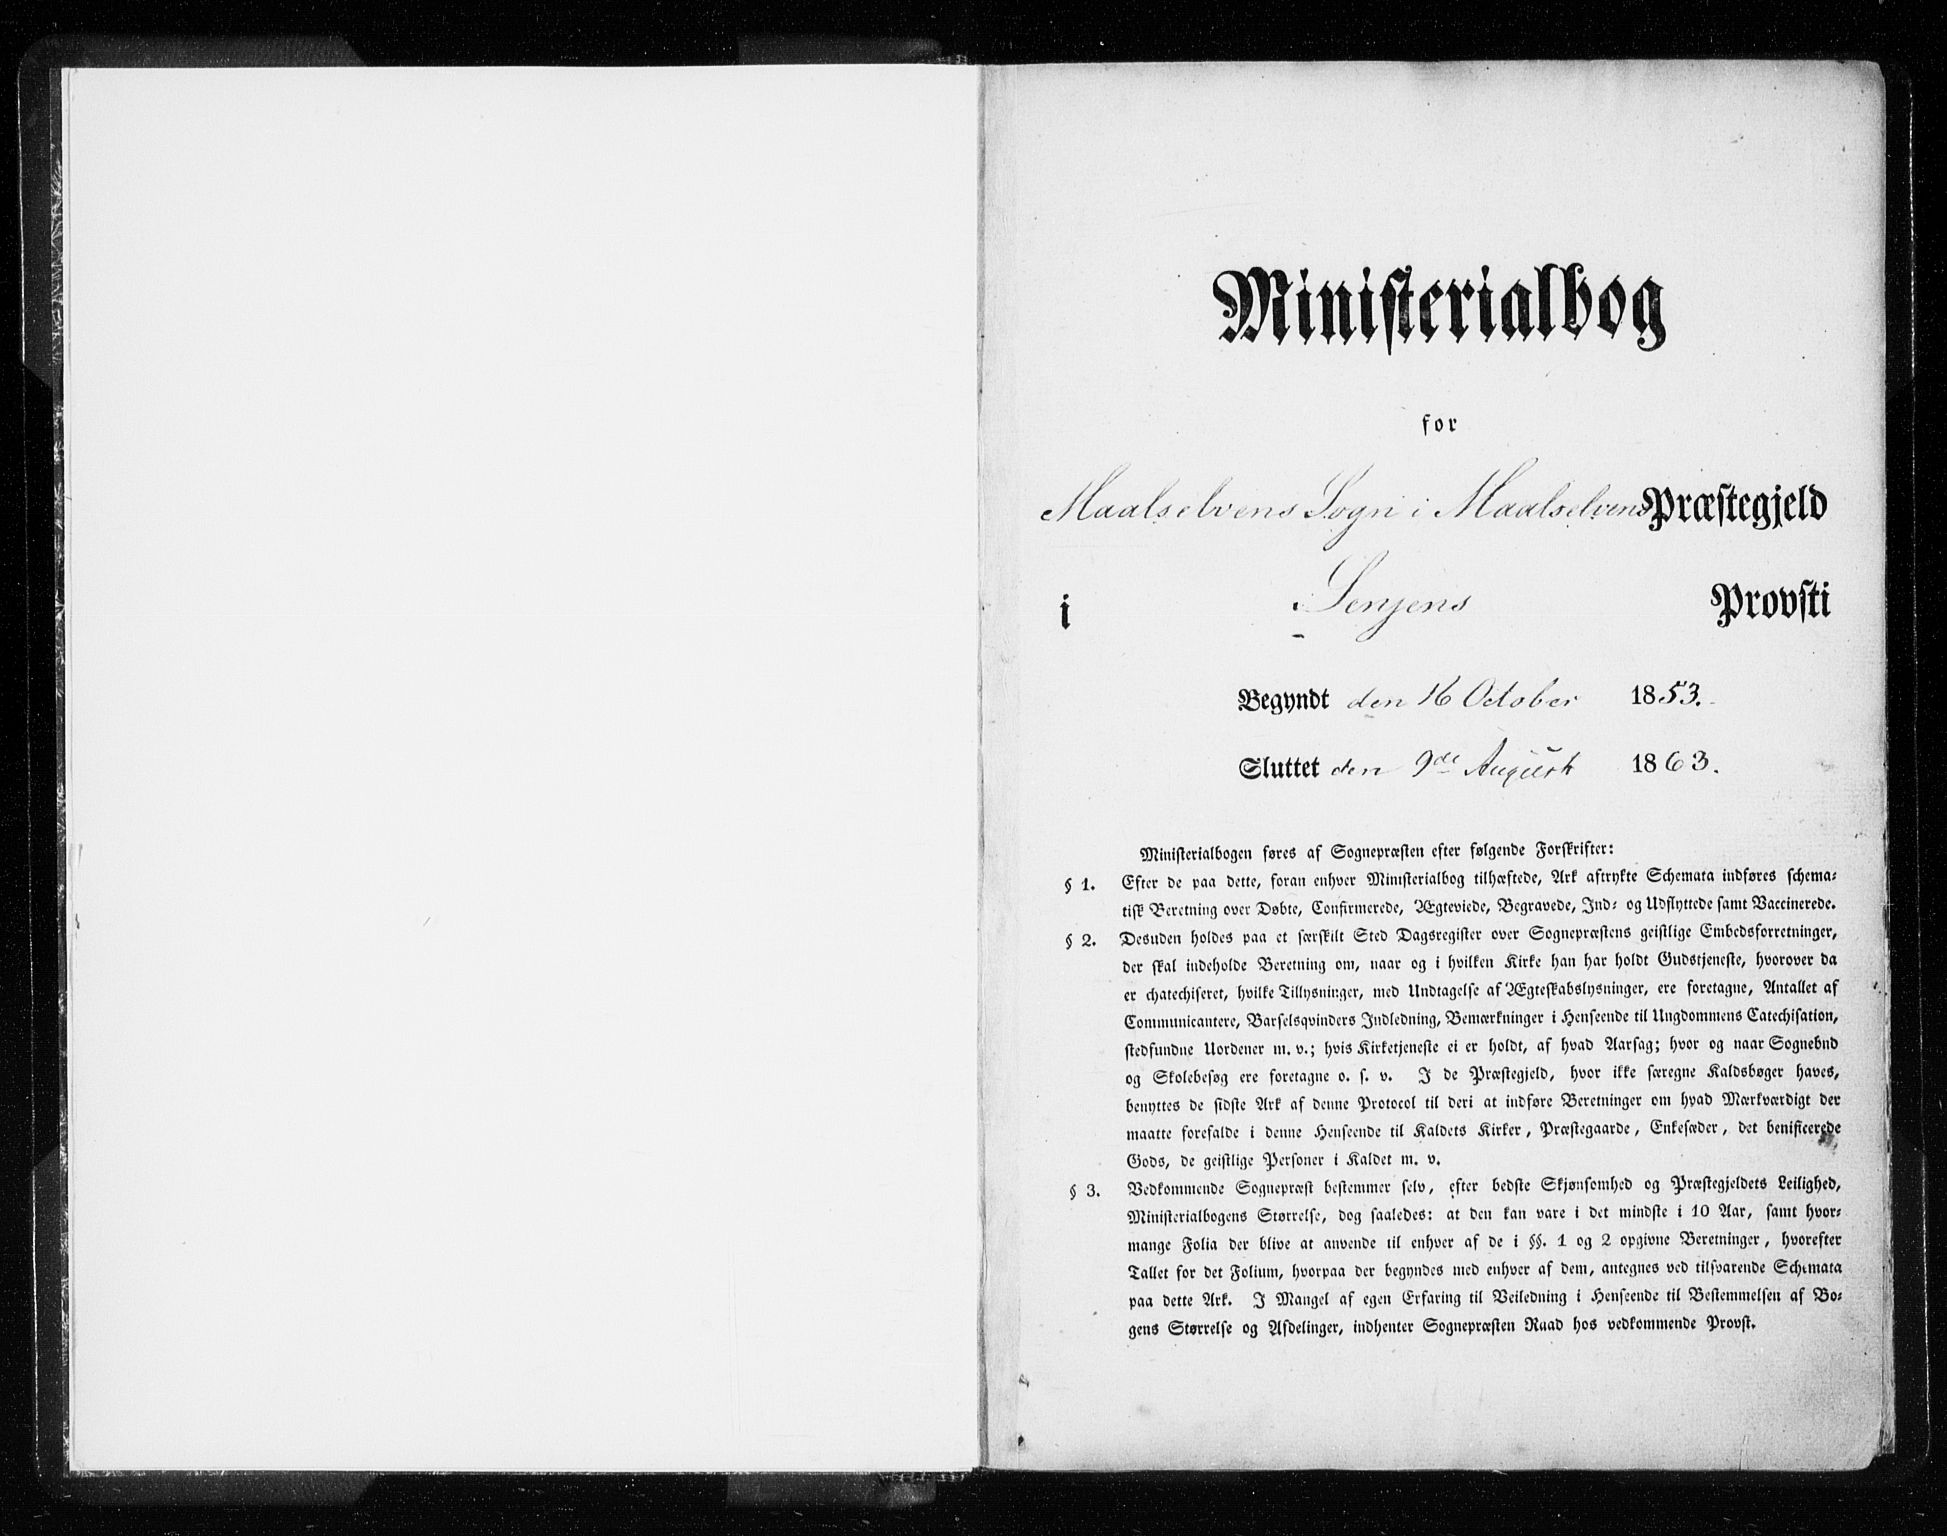 Ministerialbog
for
Maalselvens Sogn i Maalselvens Præstegjeld
i Senjens Provsti
Begyndt den 16 October 1853.
Sluttet den 9de August 1863.
Ministerialbogen føres af Sognepræsten efter følgende Forskrifter:
§ 1. Efter de paa dette, foran enhver Ministerialbog tilhæftede, Ark aftrykte Schemata indføres schema-
tisk Beretning over Døbte, Confirmerede, Ægteviede, Begravede, Ind- og Udflyttede samt Vaccinerede.
§ 2. Desuden holdes paa et særskilt Sted Dagsregister over Sognepræstens geistlige Embedsforretninger,
der skal indeholde Beretning om, naar og i hvilken Kirke han har holdt Gudstjeneste, hvorover da
er chatechiseret, hvilke Tillysninger, med Undtagelse af Ægteskabslysninger, ere foretagne, Antallet af
Communicantere, Barselsqvinders Indledning, Bemærkninger i Henseende til Ungdommens Catechisation,
stedfundne Uordener m. v.; hvis Kirketjeneste ei er holdt, af hvad Aarsag; hvor og naar Sognebud
og Skolebesøg ere foretagne o. s. v. I de Præstegjeld, hvor ikke særegne Kaldsbøger haves,
benyttes de sidste Ark af denne Protocol til deri at indføre Beretninger om hvad Mærkværdigt der
maatte forefalde i denne Henseende til Kaldets Kirker, Præstegaarde, Enkesæder, det benificerede
Gods, de geistlige Personer i Kaldet m. v.
§ 3. Vedkommende Sognepræst bestemmer selv, efter bedste Skjønsomhed og Præstegjeldets Leilighed,
Ministerialbogens Størrelse, dog saaledes: at den kan vare i det mindste i 10 Aar, samt hvor-
mange Folia der blive at anvende til enhver af de i §§. 1 og 2 opgivne Beretninger, hvorefter
Tallet for det Folium, hvorpaa der begyndes med enhver af dem, antegnes ved tilsvarende Schemata
paa dette Ark. I Mangel af egen Erfaring til Veiledning i Henseende til Bestemmelsen af Bo-
gens Størrelse og Afdelinger, indhenter Sognepræsten Raad hos vedkommende Provst.